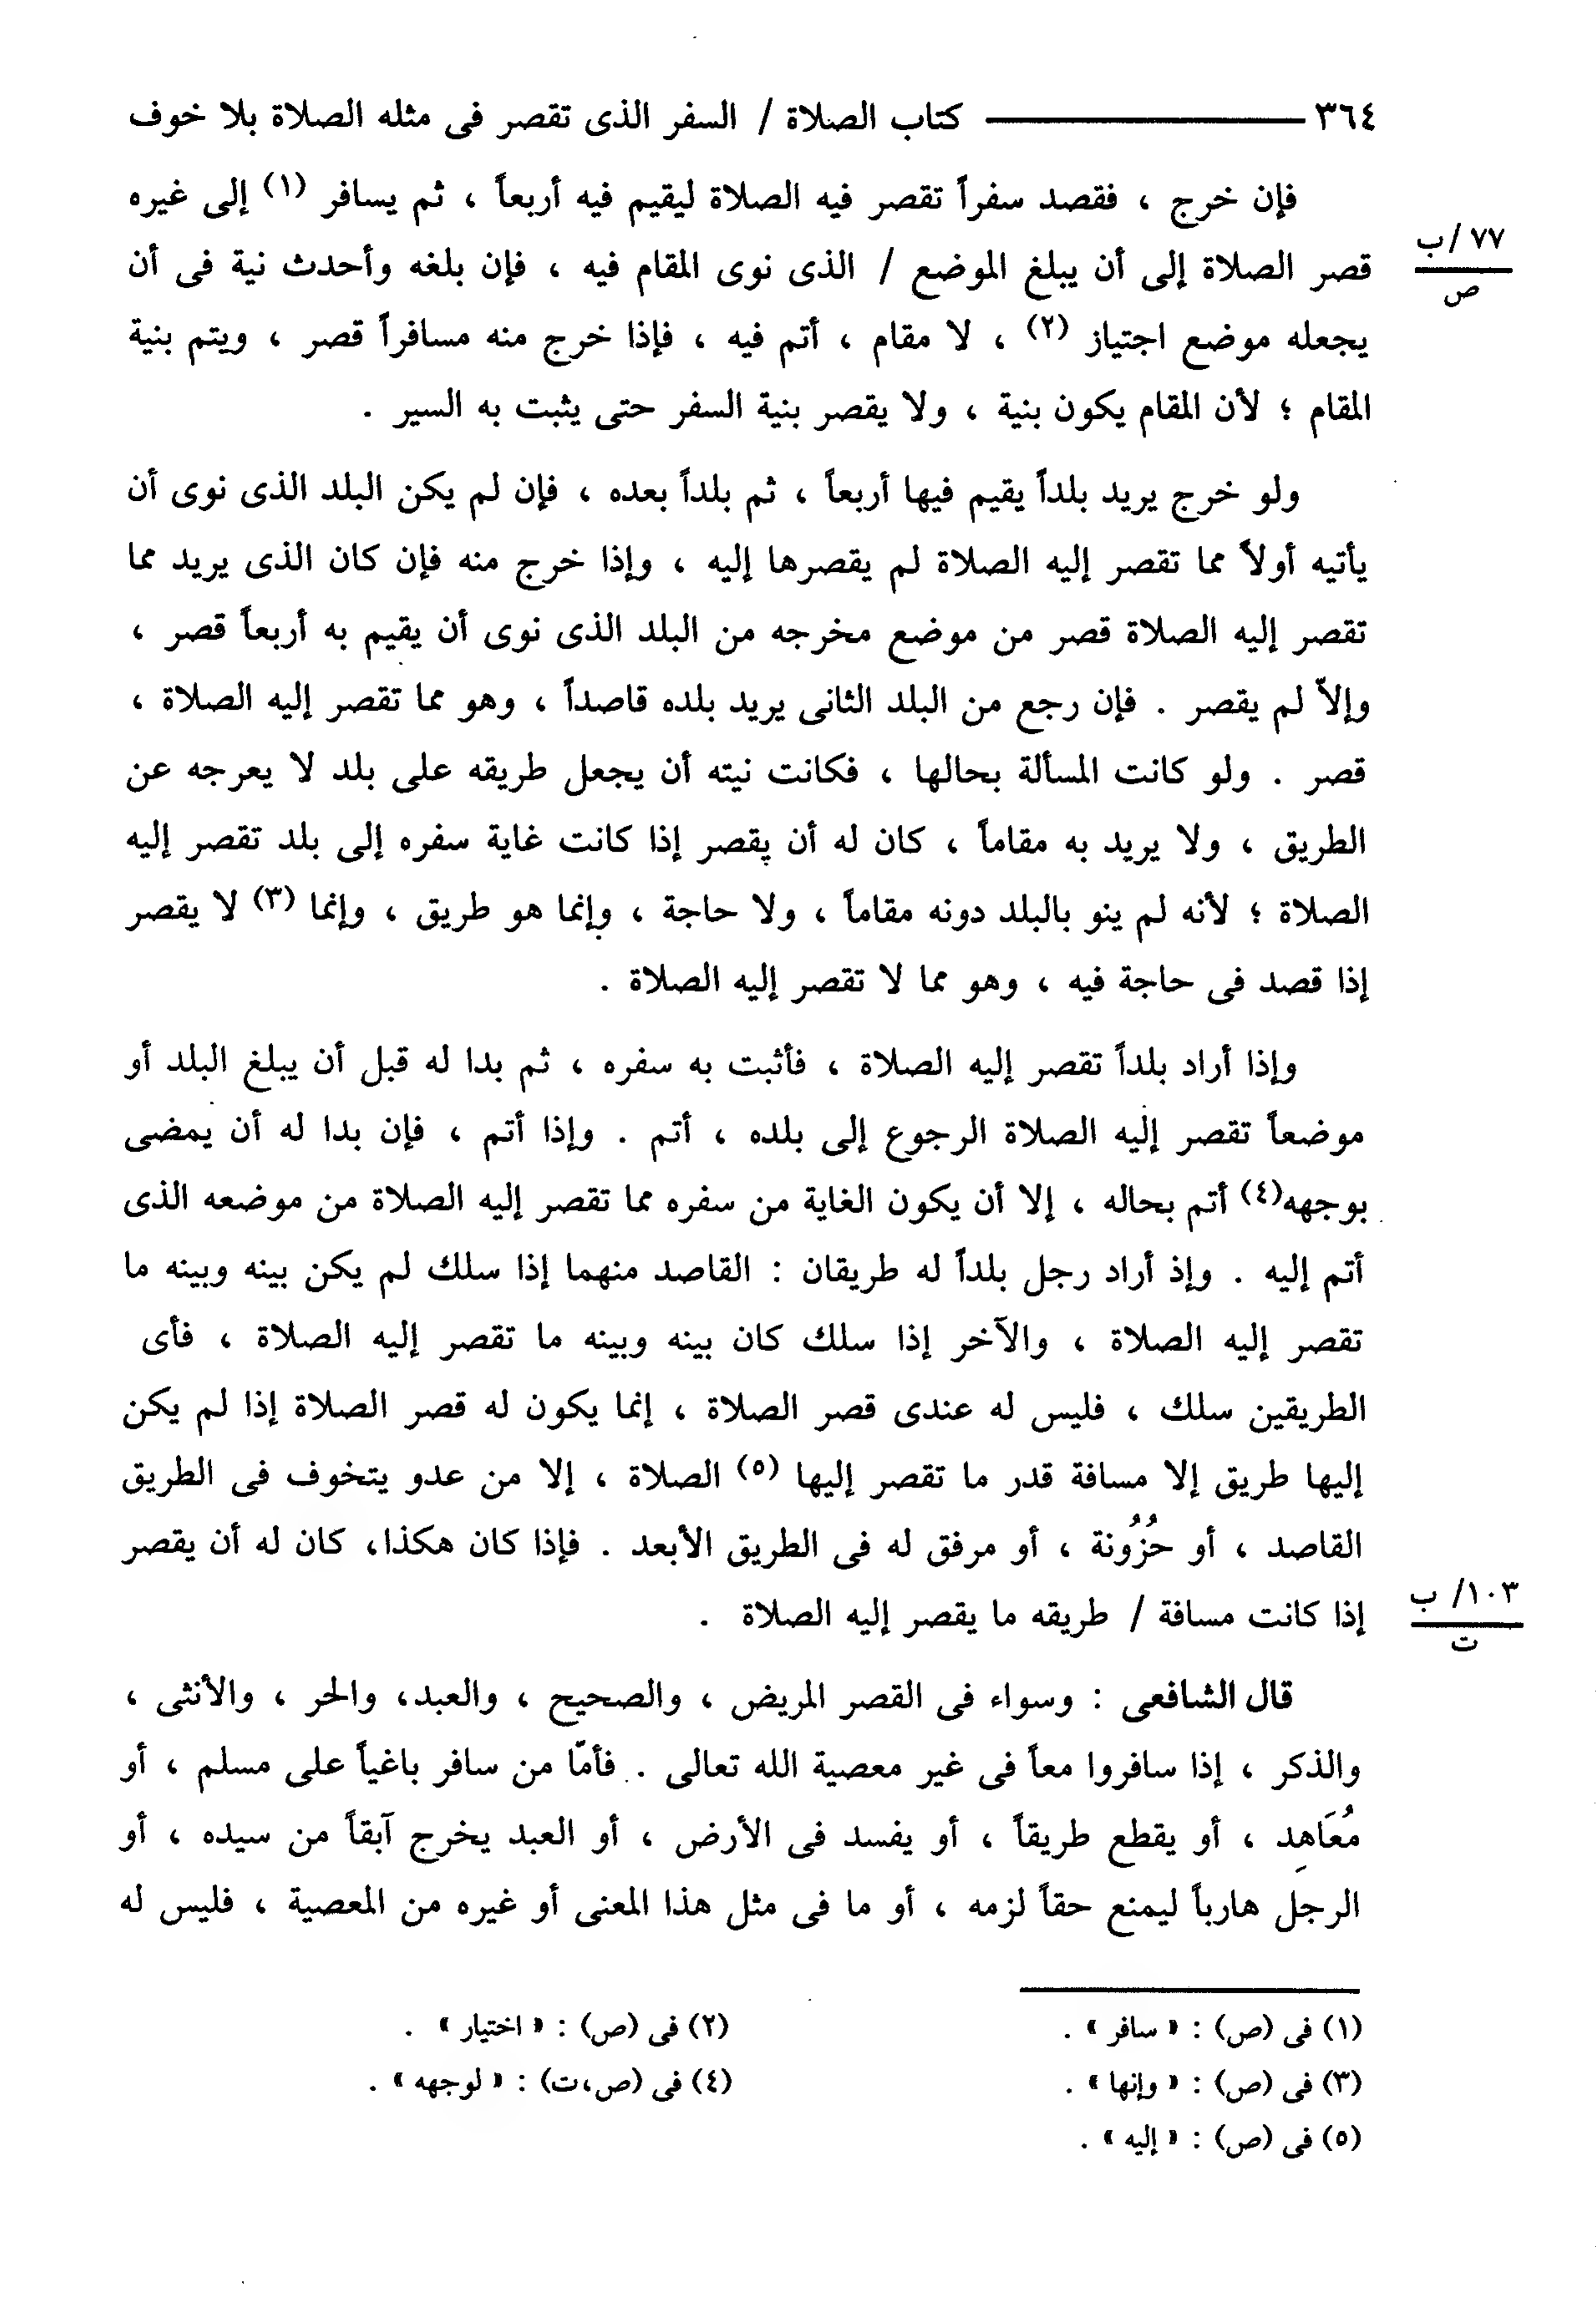 ٣٦٤ ــــــــــــــــ كتاب الصلاة / السفر الذى تقصر فى مثله الصلاة بلا خوف
فإن خرج ، فقصد سفراً تقصر فيه الصلاة ليقيم فيه أربعاً ، ثم يسافر (١) إلى غيره
٧٧/ب
ص
قصر الصلاة إلى أن يبلغ الموضع / الذى نوى المقام فيه ، فإن بلغه وأحدث نية فى أن
يجعله موضع اجتياز (٢) ، لا مقام ، أتم فيه ، فإذا خرج منه مسافراً قصر ، ويتم بنية
المقام ؛ لأن المقام يكون بنية ، ولا يقصر بنية السفر حتى يثبت به السير .
ولو خرج يريد بلداً يقيم فيها أربعاً ، ثم بلداً بعده ، فإن لم يكن البلد الذى نوى أن
يأتيه أولاً مما تقصر إليه الصلاة لم يقصرها إليه ، وإذا خرج منه فإن كان الذى يريد مما
تقصر إليه الصلاة قصر من موضع مخرجه من البلد الذى نوى أن يقيم به أربعاً قصر ،
وإلاّ لم يقصر . فإن رجع من البلد الثانى يريد بلده قاصداً ، وهو مما تقصر إليه الصلاة ،
قصر . ولو كانت المسألة بحالها ، فكانت نيته أن يجعل طريقه على بلد لا يعرجه عن
الطريق ، ولا يريد به مقاماً ، كان له أن يقصر إذا كانت غاية سفره إلى بلد تقصر إليه
الصلاة ؛ لأنه لم ينو بالبلد دونه مقاماً ، ولا حاجة ، وإنما هو طريق ، وإنما (٣) لا يقصر
إذا قصد فى حاجة فيه ، وهو مما لا تقصر إليه الصلاة .
وإذا أراد بلداً تقصر إليه الصلاة ، فأثبت به سفره ، ثم بدا له قبل أن يبلغ البلد أو
موضعاً تقصر إليه الصلاة الرجوع إلى بلده ، أتم . وإذا أتم ، فإن بدا له أن يمضى
بوجهه(٤) أتم بحاله ، إلا أن يكون الغاية من سفره مما تقصر إليه الصلاة من موضعه الذى
أتم إليه . وإذ أراد رجل بلداً له طريقان : القاصد منهما إذا سلك لم يكن بينه وبينه ما
تقصر إليه الصلاة ، والآخر إذا سلك كان بينه وبينه ما تقصر إليه الصلاة ، فأى
الطريقين سلك ، فليس له عندى قصر الصلاة ، إنما يكون له قصر الصلاة إذا لم يكن
إليها طريق إلا مسافة قدر ما تقصر إليها (٥) الصلاة ، إلا من عدو يتخوف فى الطريق
القاصد ، أو حُزُونة ، أو مرفق له فى الطريق الأبعد . فإذا كان هكذا، كان له أن يقصر
١٠٣/ ب
ت
إذا كانت مسافة / طريقه ما يقصر إليه الصلاة .
قال الشافعى : وسواء فى القصر المريض ، والصحيح ، والعبد، والحر ، والأنثى ،
والذكر ، إذا سافروا معاً فى غير معصية الله تعالى . فأمّا من سافر باغياً على مسلم ، أو
مُعَاهِد ، أو يقطع طريقاً ، أو يفسد فى الأرض ، أو العبد يخرج آبقاً من سيده ، أو
الرجل هارباً ليمنع حقاً لزمه ، أو ما فى مثل هذا المعنى أو غيره من المعصية ، فليس له
(١) فى (ص) : « سافر » .
(٢) فى (ص) : « اختيار » .
(٣) فى (ص) : « وإنها » .
(٤) فى (ص،ت) : « لوجهه » .
(٥) فى (ص) : « إليه » .